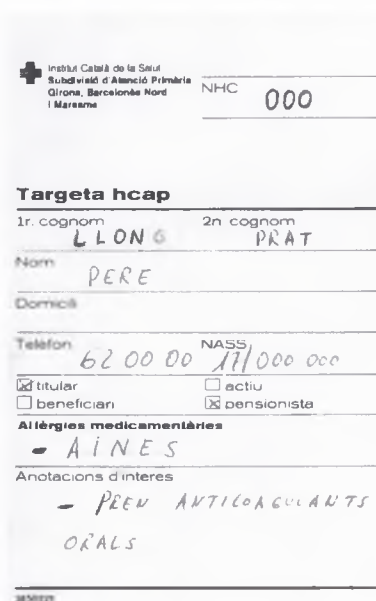 Institut Català de la Salut
Subdivisió d'Atenció Primària
Girona, Barcelonès Nord
i Maresme
NHC 000
Targeta hcap
1r. cognom 2n cognom
LLONG PRAT
Nom
PERE
Domicili
Telèfon NASS
62 00 00 17/000 000
titular actiu
beneficiari pensionista
Al·lèrgies medicamentàries
- AINES
Anotacions d'interes
- PREN ANTICOAGULANTS
ORALS